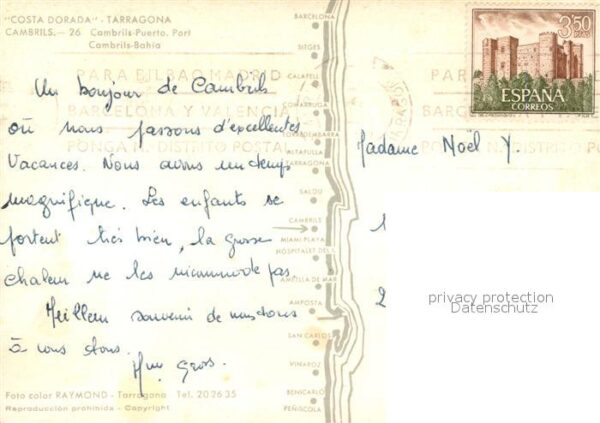 "COSTA DORADA" - TARRAGONA
CAMBRILS. - 26 Cambrils-Puerto. Port
Cambrils-Bahía
Un bonjour de Cambrils
où nous passons d'excellentes
Vacances. Nous avons un temps
magnifique. Les enfants se
portent très bien, la grosse
chaleur ne les incommode pas.
Meilleur souvenir de nous tous
à vous tous.
Foto color RAYMOND - Tarragona Tel. 202635
Reproducción prohibida - Copyright
BARCELONA
SITGES
CALAFELL
COMARRUGA
TORREDEMBARRA
ALTAFULLA
TARRAGONA
SALOU
CAMBRILS
MIAMI PLAYA
HOSPITALET DEL I.
AMETLLA DE MAR
AMPOSTA
SAN CARLOS
VINAROZ
BENICARLO
PEÑISCOLA
PARA BILBAO MADRID
BARCELONA Y VALENCIA
PONGA N. DISTRITO POSTAL
3'50
PTAS
ESPAÑA
CORREOS
Madame Noël Y.
privacy protection
Datenschutz